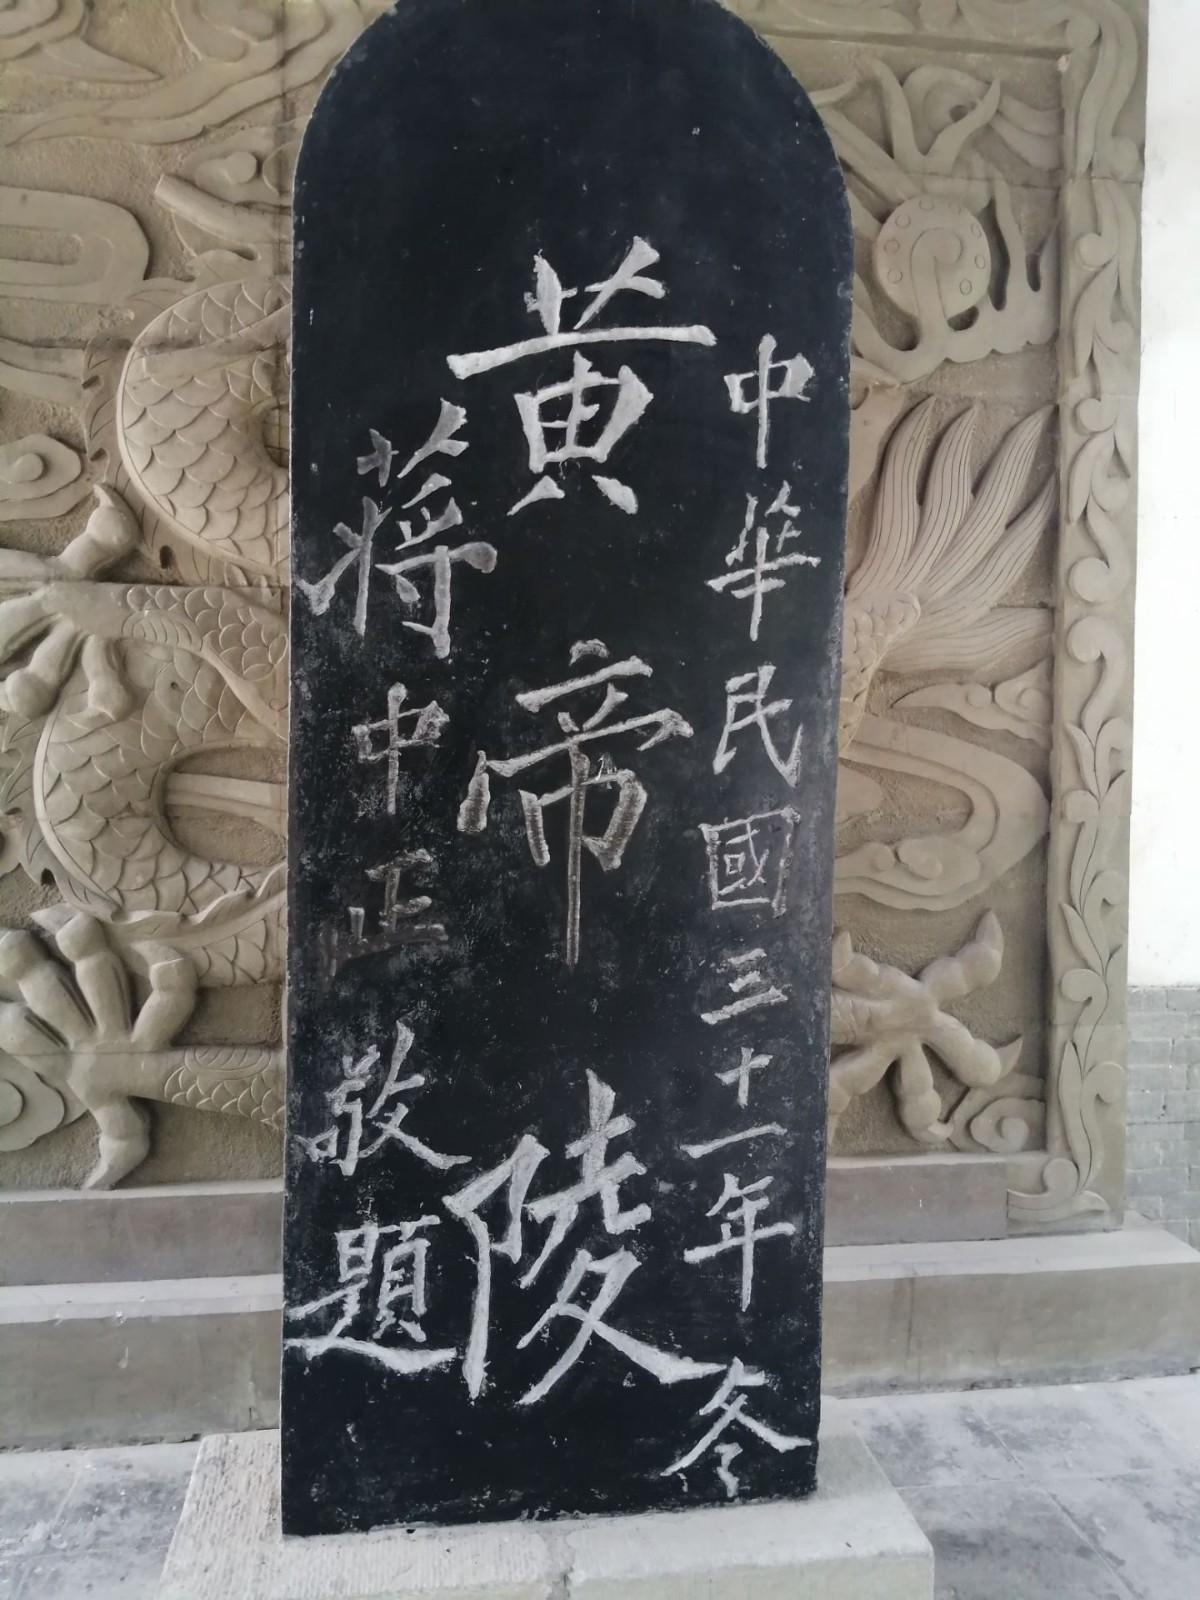 中華民國三十一年冬
黄帝陵
蔣中正敬題